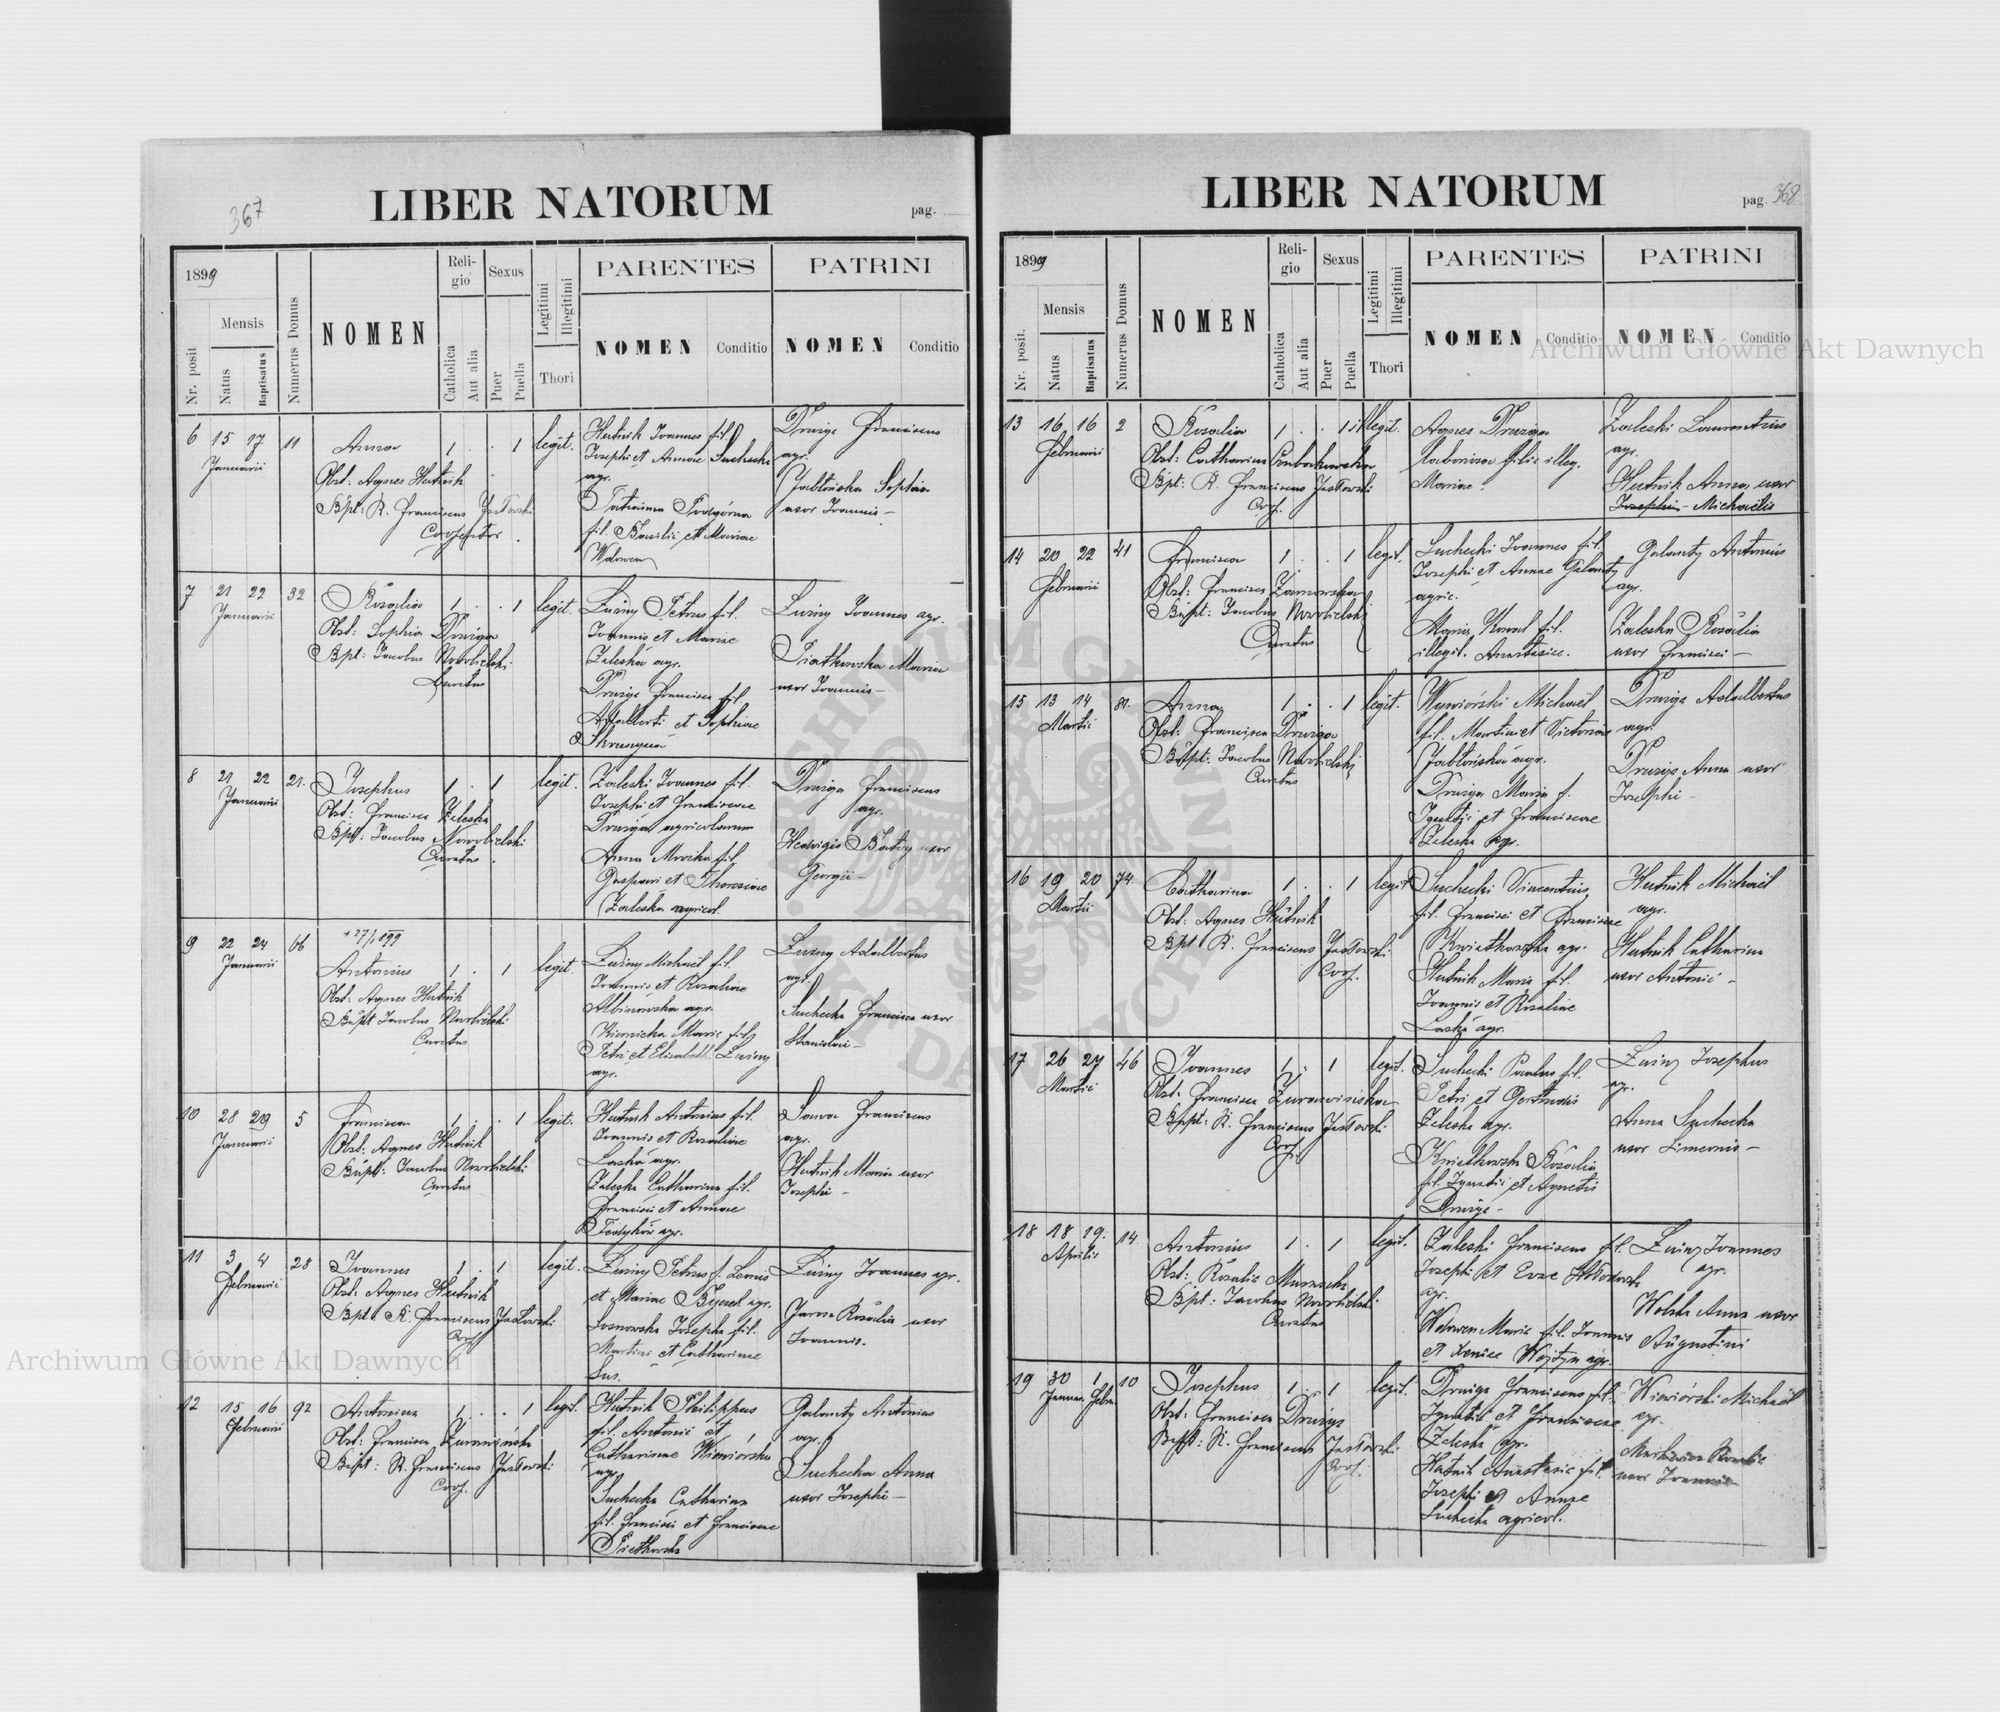 367
LIBER NATORUM
pag.
1899
Mensis
Nr. posit
Natus
Baptisatus
Numerus Domus
NOMEN
Reli-
gio
Catholica
Aut alia
Sexus
Puer
Puella
Legitimi
Illegitimi
Thori
PARENTES
NOMEN Conditio
PATRINI
NOMEN Conditio
6 15 17 11 Anna 1 . . 1 legit.
Januarii
Obst: Agnes Hutnik
Bpt: R. Franciscus Jasłowski
Cooperator
Hutnik Joannes fil.
Josephi et Annae Suchecka
agr.
fil. Basilii et Mariae
Drwiga Franciscus
agr.
Jabłońska Sophia
uxor Joannis –
7 21 22 32 Rosalia 1 . . 1 legit.
Januarii
Obst: Sophia Drwiga
Bpt: Jacobus Nowobielski
Curatus
Luziny Petrus fil.
Joannis et Mariae
Zaleska agr.
Drwiga Francisca fil.
Adalberti et Sophiae
Luziny Joannes agr.
Piatkowska Maria
uxor Joannis –
8 21 22 21. Josephus 1 . 1 legit.
Januarii
Obst: Francisca Zaleska
Bpt: Jacobus Nowobielski
Curatus
Zaleski Joannes fil.
Josephi et Franciscae
Drwiga agricolarum
Anna fil.
Gaspari et Theresiae
Zaleska agricol.
Drwiga Franciscus
agr.
Hedvigis Batog uxor
Georgii –
9 22 24 66 Antonius 1 . 1 legit.
Januarii
+ 27/1 899
Obst: Agnes Hutnik
Bapt Jacobus Nowobielski
Curatus
Luziny Michael fil.
Joannis et Rosaliae
Albinowska agr.
Maria fil.
Petri et Elisabeth Luziny
agr.
Luziny Adalbertus
agr.
Suchecka Francisca uxor
Stanislai –
10 28 29 5 Francisca 1 . . 1 legit.
Januarii
Obst: Agnes Hutnik
Bapt: Jacobus Nowobielski
Curatus
Hutnik Antonius fil.
Joannis et Rosaliae
Laska agr.
Zaleska Catharina fil.
Francisci et Annae
agr.
Franciscus
agr.
Hutnik Maria uxor
Josephi –
11 3 4 28 Joannes 1 . 1 legit.
Februarii
Obst: Agnes Hutnik
Bpt: R. Franciscus Jasłowski
Coop.
Luziny Petrus f. Leonis
et Mariae agr.
Sosnowska Josepha fil.
Martini et Catharinae
Sus.
Luziny Joannes agr.
Rosalia uxor
Joannis.
12 15 16 92 Antonina 1 . . 1 legit.
Februarii
Obst: Francisca Żurawińska
Bapt: R. Franciscus Jasłowski
Coop.
Hutnik Philippus
fil. Antonii et
Catharinae Wiewiórska
agr.
Suchecka Catharina
fil. Francisci et Franciscae
Piatkowska
Galanty Antonius
agr.
Suchecka Anna
uxor Josephi –
LIBER NATORUM
pag. 368
1899
Mensis
Nr. posit.
Natus
Baptisatus
Numerus Domus
NOMEN
Reli-
gio
Catholica
Aut alia
Sexus
Puer
Puella
Legitimi
Illegitimi
Thori
PARENTES
NOMEN Conditio
PATRINI
NOMEN Conditio
13 16 16 2 Rosalia 1 . . 1 illegit.
Februarii
Obst: Catharina
Bpt: R. Franciscus Jasłowski
Coop.
Agnes Drwiga
laboriosa filia illeg.
Mariae.
Zaleski Laurentius
agr.
Hutnik Anna, uxor
Josephi – Michaelis
14 20 22 41 Francisca 1 . . 1 legit.
Februarii
Obst: Francisca
Bapt: Jacobus Nowobielski
Curatus
Suchecki Joannes fil.
Josephi et Annae Galanty
agric.
Maria Kowal fil.
illegit. Anastasiae.
Galanty Antonius
agr.
Zaleska Rosalia
uxor Francisci –
15 13 14 81. Anna 1 . . 1 legit.
Martii
Obst: Francisca Drwiga
Bapt: Jacobus Nowobielski
Curatus
Michael
fil. Martini et Victoriae
Jabłońska agr.
Drwiga Maria f.
Ignatii et Franciscae
Zaleska agr.
Drwiga Adalbertus
agr.
Drwiga Anna uxor
Josephi –
16 19 20 74. Catharina 1 . . 1 legit
Martii
Obst: Agnes Hutnik
Bpt R. Franciscus Jasłowski
Coop.
Suchecki Vincentius
fil. Francisci et Franciscae
Kwiatkowska agr.
Hutnik Maria fil.
Joannis et Rosaliae
Laska agr.
Hutnik Michael
agr.
Hutnik Catharina
uxor Antonii –
17 26 27 46 Joannes 1 . 1 legit.
Martii
Obst: Francisca Żurawińska
Bapt: R. Franciscus Jasłowski
Coop.
Suchecki Paulus fil.
Petri et Gertrudis
Zaleska agr.
Kwiatkowska Rosalia
fil. Ignatii et Agnetis
Drwiga –
Luziny Josephus
agr.
Anna Suchecka
uxor Simeonis –
18 18 19. 14. Antonius 1 . 1 legit.
Aprilis
Obst: Rosalia
Bpt: Jacobus Nowobielski
Curatus
Zaleski Franciscus f.
Josephi et Evae
agr.
Maria fil. Joannis
et Xeniae agr.
Luziny Joannes
agr.
Wolska Anna uxor
Augustini
19 30 1 10 Josephus 1 . 1 legit.
Januar. Febr.
Obst: Francisca Drwiga
Bapt: R. Franciscus Jasłowski
Coop.
Drwiga Franciscus fil.
Ignatii et Franciscae
Zaleska agr.
Hutnik Anastasia fil.
Josephi et Annae
Suchecka agricol.
Wiewiórski Michael
agr.
uxor Joannis
Archiwum Główne Akt Dawnych
Archiwum Główne Akt Dawnych
ARCHIWUM GŁÓWNE AKT DAWNYCH